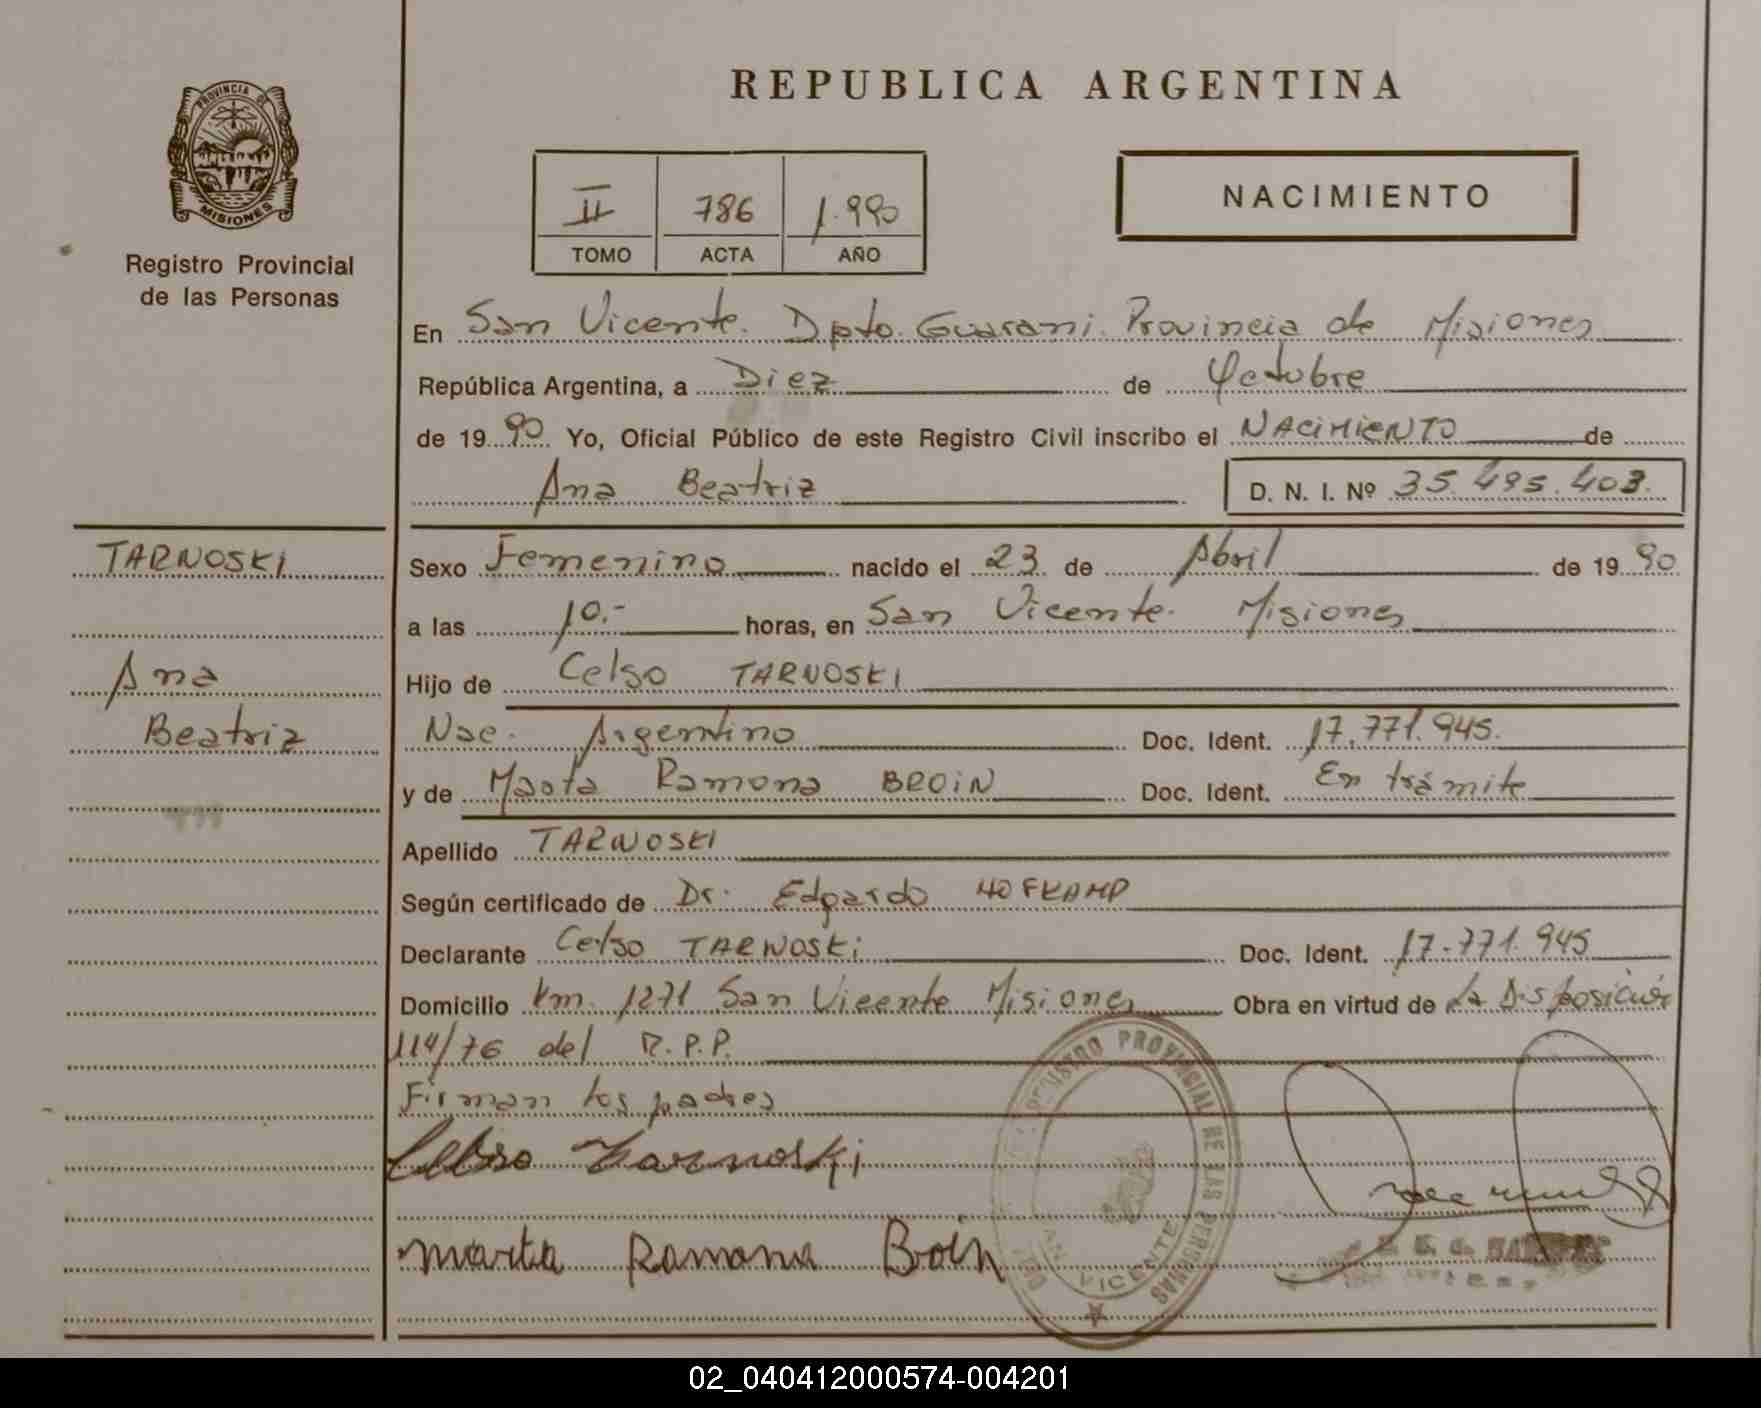 REPUBLICA ARGENTINA
PROVINCIA DE
MISIONES
Registro Provincial
de las Personas
II 786 1.990
TOMO ACTA AÑO
NACIMIENTO
En San Vicente. Dpto. Guarani. Provincia de Misiones
República Argentina, a Diez de Octubre
de 1990. Yo, Oficial Público de este Registro Civil inscribo el NACIMIENTO de
Ana Beatriz D. N. I. Nº 35.495.403.
TARNOSKI
Ana
Beatriz
Sexo Femenino nacido el 23 de Abril de 1990
a las 10.- horas, en San Vicente. Misiones
Hijo de Celso TARNOSKI
Nac. Argentino Doc. Ident. 17.771.945.
y de Marta Ramona BROIN Doc. Ident. En trámite
Apellido TARNOSKI
Según certificado de Dr. Edgardo HOFKAMP
Declarante Celso TARNOSKI Doc. Ident. 17.771.945
Domicilio Km. 1271 San Vicente Misiones Obra en virtud de La Disposición
114/76 del R.P.P.
Firman los padres
Celso Tarnoski
Marta Ramona Broin
REGISTRO PROVINCIAL DE LAS PERSONAS
SAN VICENTE
02_040412000574-004201